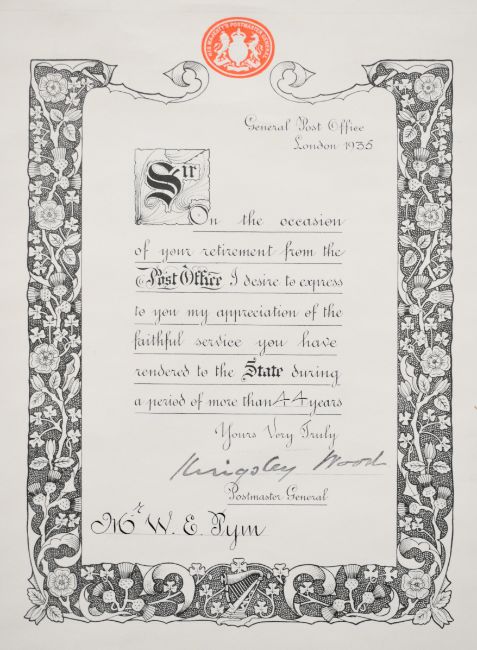 HIS MAJESTY'S POSTMASTER GENERAL
General Post Office
London 1935
Sir
On the occasion
of your retirement from the
Post Office I desire to express
to you my appreciation of the
faithful service you have
rendered to the State during
a period of more than 44 years
Yours Very Truly
Kingsley Wood
Postmaster General
Mr W. E. Pym